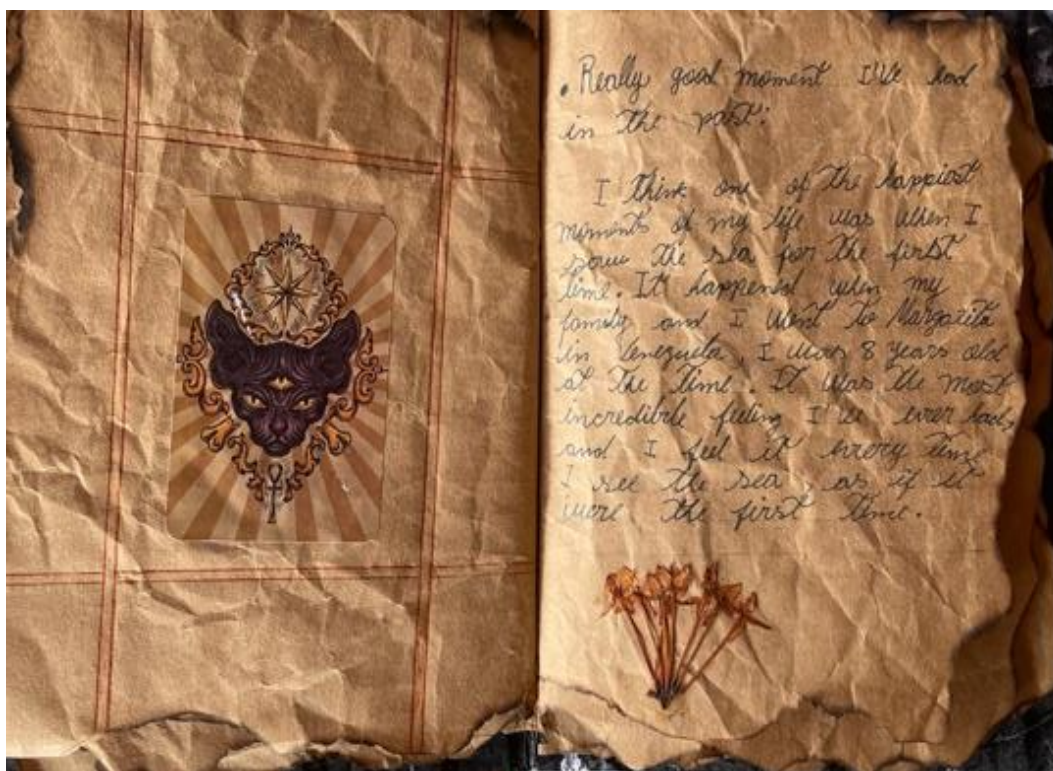 . Really good moment I've had
in the past:
I think one of the happiest
moments of my life was when I
saw the sea for the first
time. It happened when my
family and I went to Margarita
in Venezuela, I was 8 years old
at the time. It was the most
incredible feeling I've ever had,
and I feel it every time
I see the sea, as if it
were the first time.